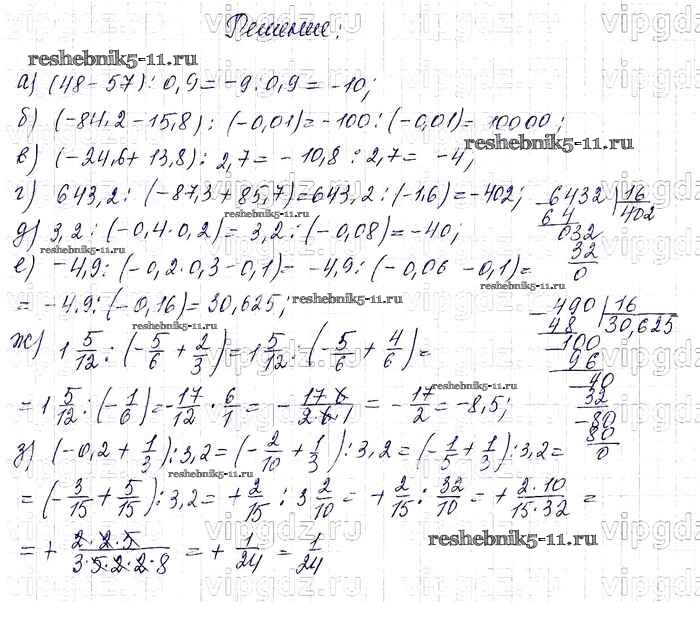 Решение:
а) (48-57):0,9=-9:0,9=-10;
б) (-84,2-15,8):(-0,01)=-100:(-0,01)=10000;
в) (-24,6+13,8):2,7=-10,8:2,7=-4;
г) 643,2:(-87,3+85,7)=643,2:(-1,6)=-402;
д) 3,2:(-0,4·0,2)=3,2:(-0,08)=-40;
е) -4,9:(-0,2·0,3-0,1)=-4,9:(-0,06-0,1)=
=-4,9:(-0,16)=30,625;
ж) 1 5/12:(-5/6+2/3)=1 5/12:(-5/6+4/6)=
=1 5/12:(-1/6)=-17/12·6/1=-17·6/2·6·1=-17/2=-8,5;
з) (-0,2+1/3):3,2=(-2/10+1/3):3,2=(-1/5+1/3):3,2=
=(-3/15+5/15):3,2=+2/15:3 2/10=+2/15:32/10=+2·10/15·32=
=+2·2·5/3·5·2·2·8=+1/24=1/24
-6432 | 16
64 402
032
32
0
-490 | 16
48 30,625
-100
96
-40
32
-80
80
0
reshebnik5-11.ru
reshebnik5-11.ru
reshebnik5-11.ru
reshebnik5-11.ru
reshebnik5-11.ru
reshebnik5-11.ru
reshebnik5-11.ru
reshebnik5-11.ru
reshebnik5-11.ru
vipgdz.ru